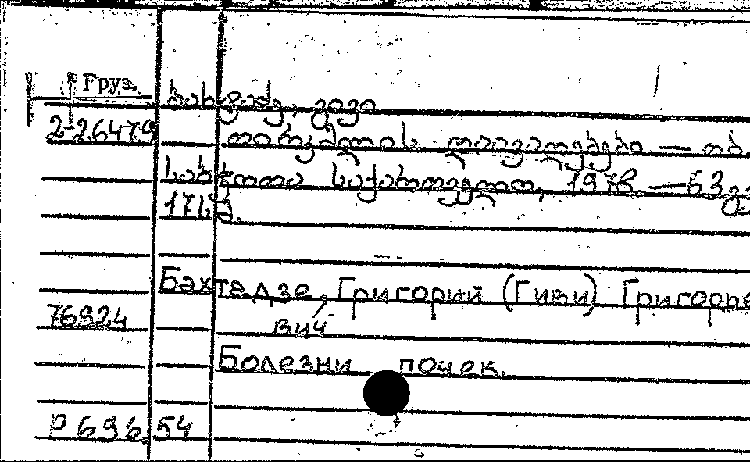 Груз.
ბახტაძე, გივი
2-26479 თირკმლის დაავადებები — თბ.
საბჭოთა საქართველო, 1978 — 63 გვ
17 სმ.
Бахтадзе, Григорий (Гиви) Григорье
76924 вич
Болезни почек.
Р 696.54